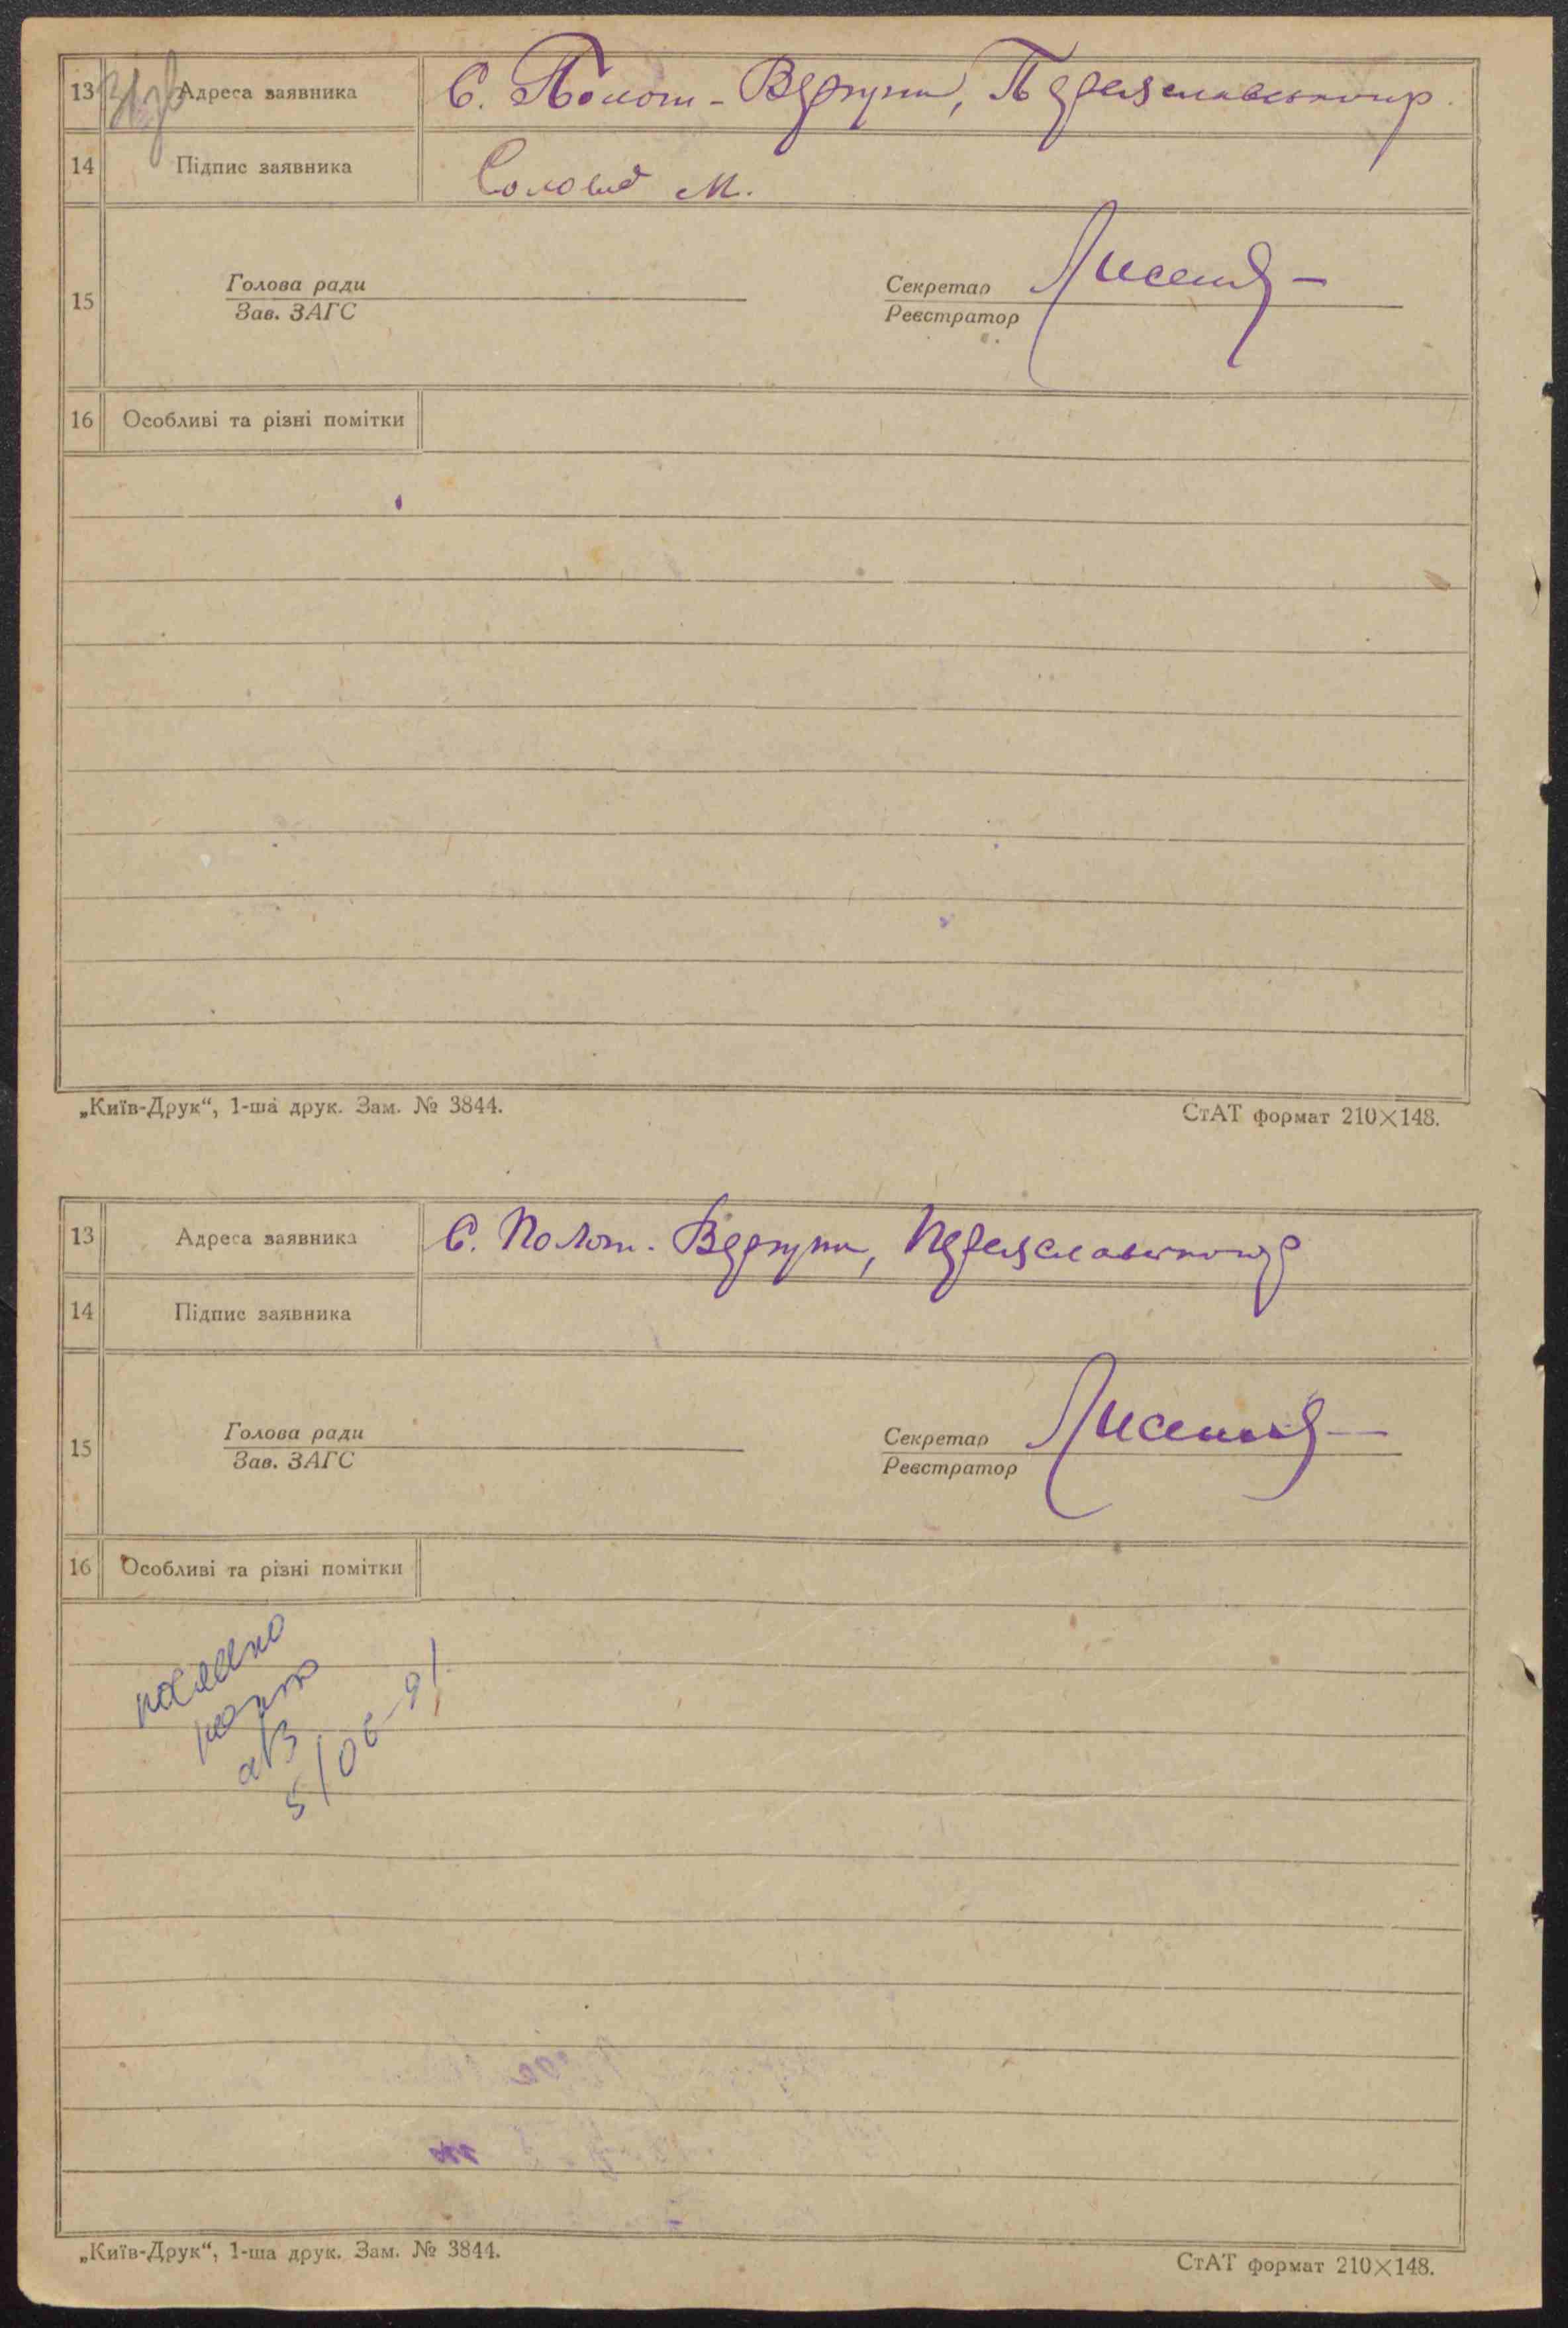 13 Адреса заявника С. Полот-Вергуни, Переяславськ р.
14 Підпис заявника Соловей М.
Голова ради Секретар Лисенко
15
Зав. ЗАГС Реєстратор
16 Особливі та різні помітки
„Київ-Друк“, 1-ша друк. Зам. № 3844. СтАТ формат 210×148.
13 Адреса заявника С. Полот-Вергуни,
14 Підпис заявника
Голова ради Секретар Лисенко
15
Зав. ЗАГС Реєстратор
16 Особливі та різні помітки
5/06-91
„Київ-Друк“, 1-ша друк. Зам. № 3844. СтАТ формат 210×148.